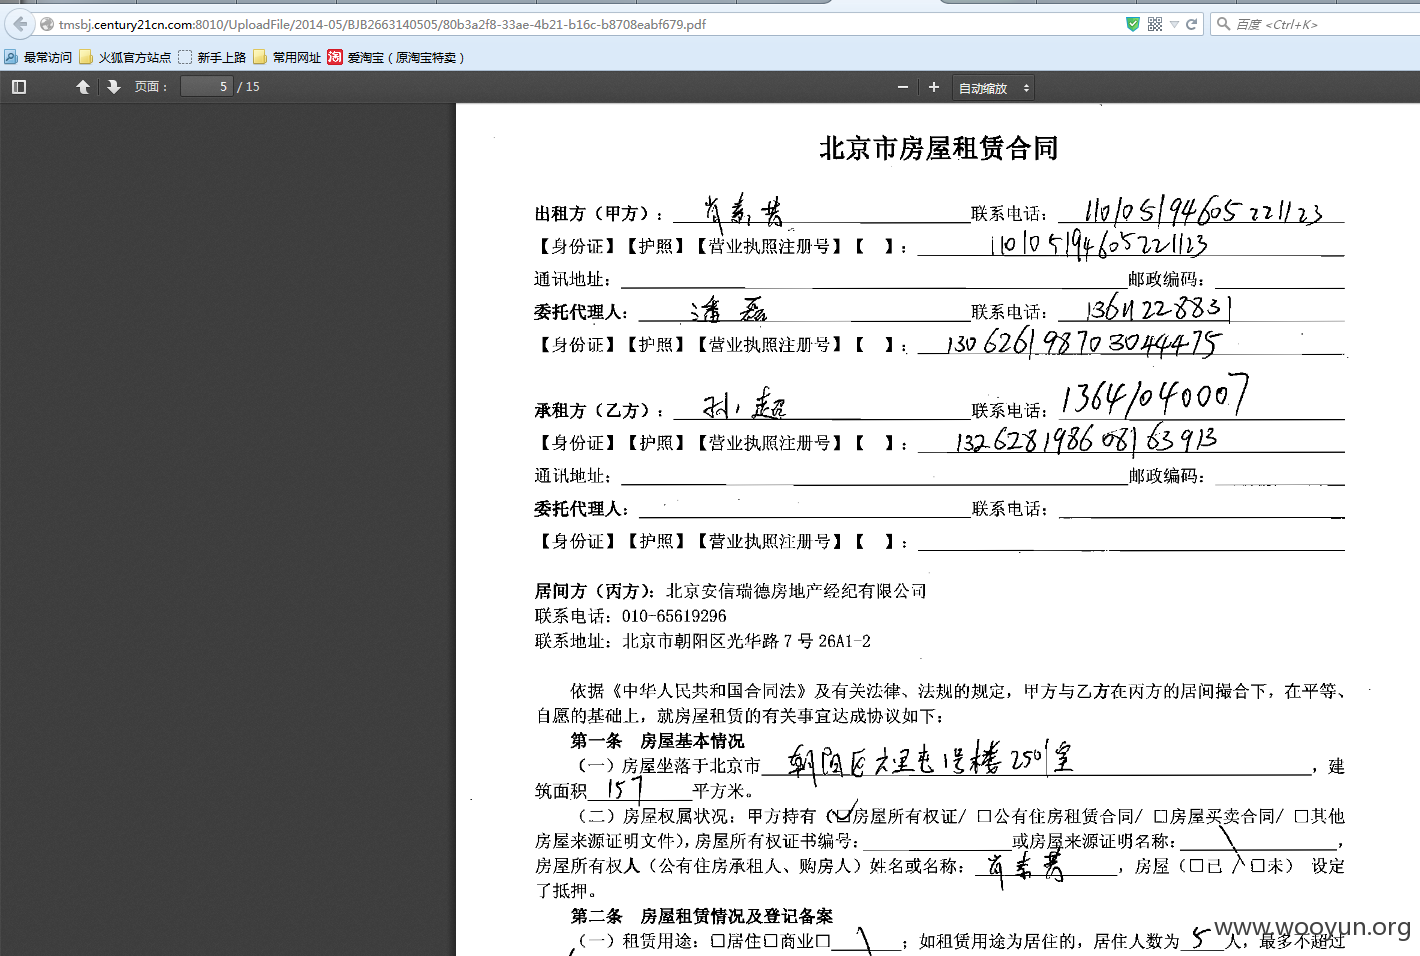 tmsbj.century21cn.com:8010/UploadFile/2014-05/BJB2663140505/80b3a2f8-33ae-4b21-b16c-b8708eabf679.pdf
百度 <Ctrl+K>
最常访问 火狐官方站点 新手上路 常用网址 淘 爱淘宝（原淘宝特卖）
页面： 5 / 15 自动缩放
北京市房屋租赁合同
出租方（甲方）： 联系电话： 110105194605221123
【身份证】【护照】【营业执照注册号】【 】： 110105194605221123
通讯地址： 邮政编码：
委托代理人： 潘磊 联系电话： 13611228831
【身份证】【护照】【营业执照注册号】【 】： 130626198703044475
承租方（乙方）： 孙超 联系电话： 13641040007
【身份证】【护照】【营业执照注册号】【 】： 132628198608163913
通讯地址： 邮政编码：
委托代理人： 联系电话：
【身份证】【护照】【营业执照注册号】【 】：
居间方（丙方）：北京安信瑞德房地产经纪有限公司
联系电话：010-65619296
联系地址：北京市朝阳区光华路 7 号 26A1-2
依据《中华人民共和国合同法》及有关法律、法规的规定，甲方与乙方在丙方的居间撮合下，在平等、
自愿的基础上，就房屋租赁的有关事宜达成协议如下：
第一条 房屋基本情况
（一）房屋坐落于北京市 朝阳区六里屯1号楼2501室 ，建
筑面积 157 平方米。
（二）房屋权属状况：甲方持有（☑房屋所有权证/ □公有住房租赁合同/ □房屋买卖合同/ □其他
房屋来源证明文件），房屋所有权证书编号： 或房屋来源证明名称： ，
房屋所有权人（公有住房承租人、购房人）姓名或名称： ，房屋（□已 / □未） 设定
了抵押。
第二条 房屋租赁情况及登记备案
（一）租赁用途：□居住□商业□ ；如租赁用途为居住的，居住人数为 5 人，最多不超过
www.wooyun.org